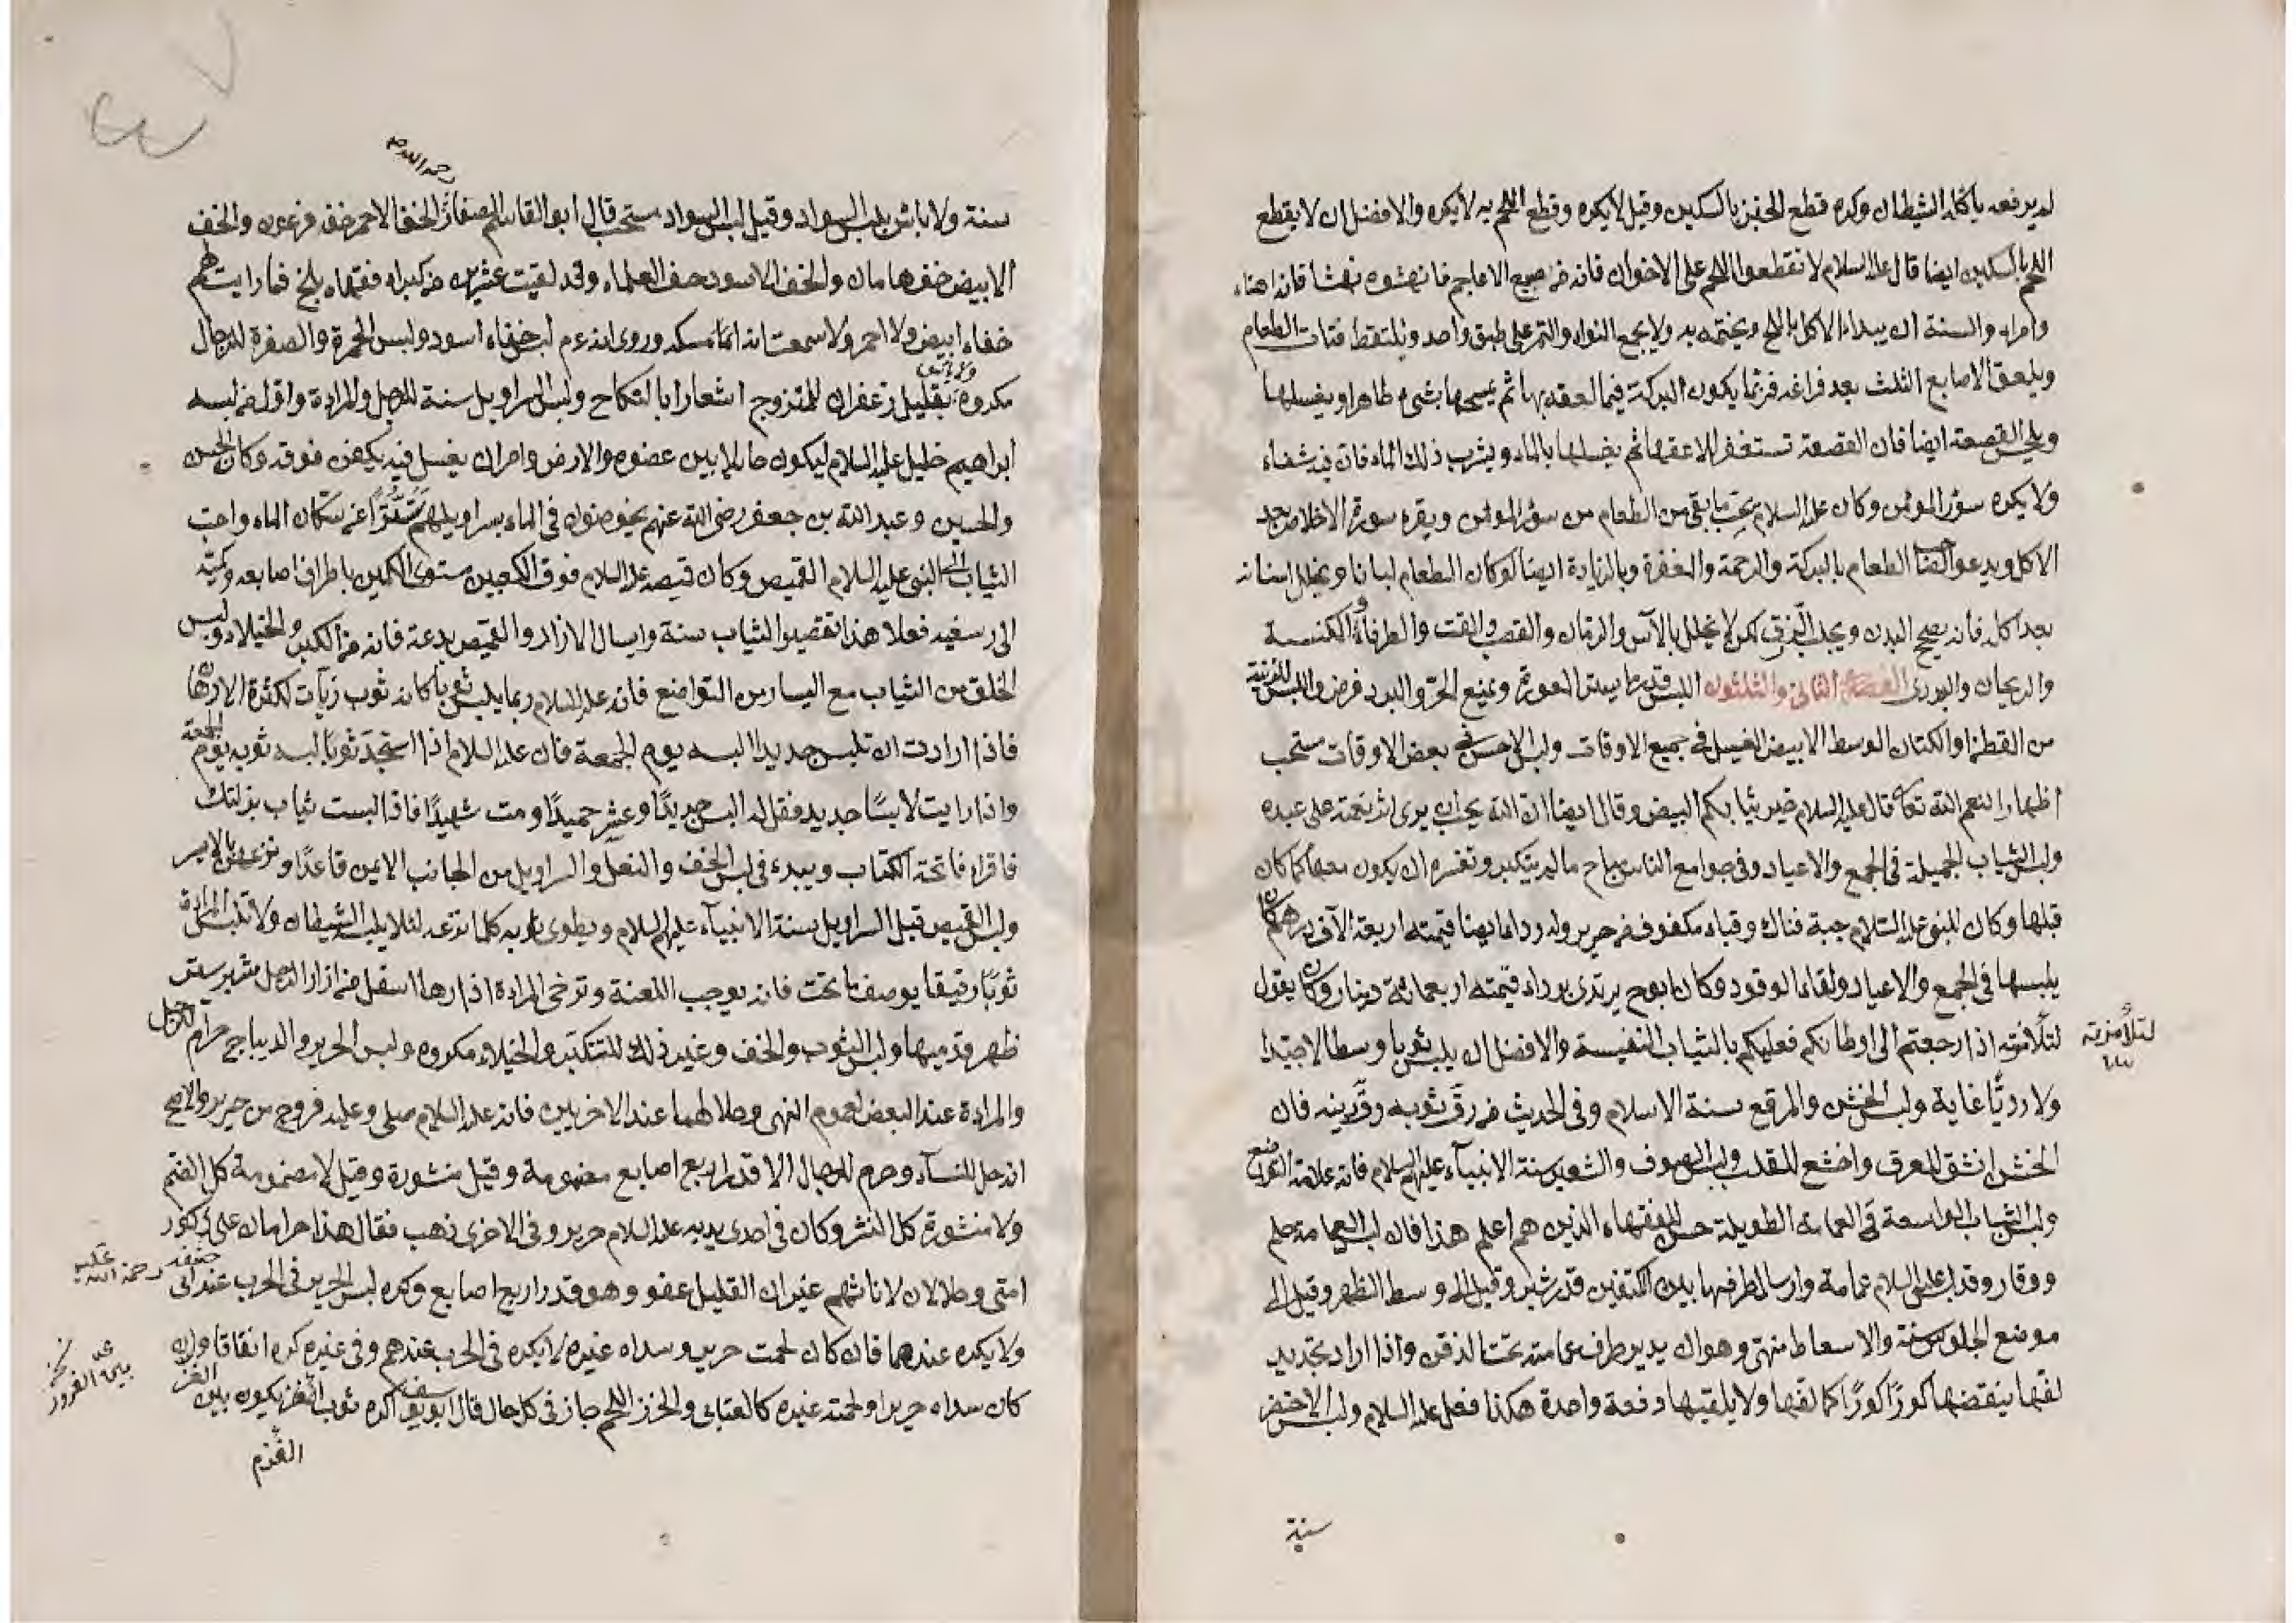 لم يرفعه يأكله الشيطان وكره قطع الخبز بالسكين وقيل لا يكره وقطع اللحم به لا يكره والافضل ان لا يقطع
اللحم بالسكين ايضا قال عليه السلام لا تقطعوا اللحم على الاخوان فانه من صنيع الاعاجم فانهشوه نهشا فانه اهناء
وامراء والسنة ان يبداء الاكل بالملح ويختمه به ولا يجمع النواة والتمر على طبق واحد ويلتقط فتات الطعام
ويلعق الاصابع الثلث بعد فراغه فربما يكون البركة فيما لعقه بها ثم يمسحها بشئ طاهر او يغسلها
ويلحس القصعة ايضا فان القصعة تستغفر للاعقها ثم يغسلها بالماء ويشرب ذلك الماء فان فيه شفاء
ولا يكره سؤر المؤمن وكان عليه السلام يحب ما بقى من الطعام من سؤر المؤمن ويقرء سورة الاخلاص بعد
الاكل ويدعو الطعام بالبركة والرحمة والمغفرة وبالزيادة ايضا لو كان الطعام لبنا ويخلل اسنانه
بعد اكله فانه يصح البدن ويجلب الرزق لكن لا يخلل بالآس والرمان والقصب والقت والطرفاء والمكنسة
والريحان والبورى الفصل الثانى والثلثون اللبس قدر ما يستر العورة ويمنع الحر والبرد فرض واللبس للزينة
من القطن او الكتان الوسط الابيض الغسيل فى جميع الاوقات ولبس الاحسن فى بعض الاوقات مستحب
اظهارا لنعم الله تعالى قال عليه السلام خير ثيابكم البيض وقال ايضا ان الله يحب ان يرى اثر نعمته على عبده
ولبس الثياب الجميلة فى الجمع والاعياد وفى جوامع الناس يباح ما لم يتكبر وتفسيره ان يكون معها كما كان
قبلها وكان للنبى عليه السلام جبة فنك وقباء مكفوف من حرير وله رداء ايضا قيمته اربعة الآف درهم كان
يلبسها فى الجمع والاعياد ولقاء الوفود وكان ابو ح يرتدى برداء قيمته اربعمائة دينار وكان يقول
لتلامذته اذا رجعتم الى اوطانكم فعليكم بالثياب النفيسة والافضل ان يلبس ثوبا وسطا لا جيدا
لتلامذته
ولا رديا غاية ولبس الخشن والمرقع سنة الاسلام وفى الحديث من رق ثوبه رق دينه فان
الخشن انشق للعرق واخشع للقلب ولبس الصوف والشعر سنة الانبياء عليهم السلام فانه علامة التواضع
ولبس الثياب الواسعة فى العمامة الطويلة حسن للفقهاء الذين هم اعلم هذا فان لبس العمامة حلم
ووقار وقد لبس عليه السلام عمامة وارسال طرفها بين الكتفين قدر شبر وقيل الى وسط الظهر وقيل الى
موضع الجلوس سنة والاسعاط منهى وهو ان يدير طرف عمامته تحت الذقن واذا اراد تجديد
لفها ينقضها كورًا كورًا كما لفها ولا يلقيها دفعة واحدة هكذا فعل عليه السلام ولبس الاخضر
سنة
رحمه الله
سنة ولا باس بلبس السواد وقيل لبس السواد مستحب قال ابو القاسم الصفار الخف الاحمر خف فرعون والخف
الابيض خف هامان والخف الاسود خف العلماء وقد لقيت عشرين من كبراء فقهاء بلخ فما رايت لهم
خفا ابيض ولا احمر ولا سمعت انه امسكه وروى انه ء م لبس خفا اسود ولبس الحمرة والصفرة للرجال
مكروه ولا باس بقليل زعفران للمتزوج اشعارا بالنكاح ولبس السراويل سنة للرجل والمراءة واول من لبسه
ابراهيم خليل عليه السلام ليكون حائلا بين عضوه والارض وامر ان يغسل فيه يكفن فوقه وكان الحسن
والحسين وعبد الله بن جعفر رضى الله عنهم يخوضون فى الماء بسراويلهم تسترًا عن سكان الماء واحب
الثياب الى النبى عليه السلام القميص وكان قميصه عليه السلام فوق الكعبين مستوى الكمين باطراف اصابعه وكميه
الى رسغيه فعلى هذا تقصير الثياب سنة واسبال الازار والقميص بدعة فانه من الكبر والخيلاء ولبس
الخلق من الثياب مع اليسار من التواضع فانه عليه السلام ربما يلبس ثوبا كانه ثوب زيات لكثرة الادهان
فاذا اردت ان تلبس جديدا البسه يوم الجمعة فان عليه السلام اذا استجد ثوبا لبسه يوم الجمعة
واذا رايت لابسًا جديد فقل له البس جديدًا وعش حميدًا ومت شهيدًا فاذا لبست ثياب بذلتك
فاقراء فاتحة الكتاب ويبدء فى لبس الخف والنعل والسراويل من الجانب الايمن قاعدًا ونزعه من الايسر
ولبس القميص قبل السراويل سنة الانبياء عليهم السلام ويطوى ثوبه كلما نزعه لئلا يلبسه الشيطان ولا تلبس المراءة
ثوبًا رقيقا يوصف ما تحت فانه يوجب اللعنة وترخى المراءة ازارها اسفل من ازار الرجل مشبر ستر
ظهر قدميها ولبس الثوب والخف وغير ذلك للتكبر والخيلاء مكروه ولبس الحرير والديباج حرام للرجل
والمراءة عند البعض لعموم النهى وحلا لهما عند الاخرين فانه عليه السلام صلى وعليه فروج من حرير والاصح
انه حل للنساء وحرم للرجال الا قدر اربع اصابع مضمومة وقيل منشورة وقيل لا مضمومة كل الضم
ولا منشورة كل النشر وكان فى احدى يديه عليه السلام حرير وفى الاخرى ذهب فقال هذا حرامان على ذكور
امتى وحلالان لاناثهم غير ان القليل عفو وهو قدر اربع اصابع وكره لبس الحرير فى الحرب عند ابى
حنيفة رحمة الله عليه
ولا يكره عندهما فان كان لحمته حرير وسداه غيره لا يكره فى الحرب عندهم وفى غيره كره اتفاقا وان
كان سداه حريرا ولحمته غيره كالعتابى والخز اللحم جاز فى كل حال قال ابو يوسف اكره ثوب القز يكون بين
الفرو